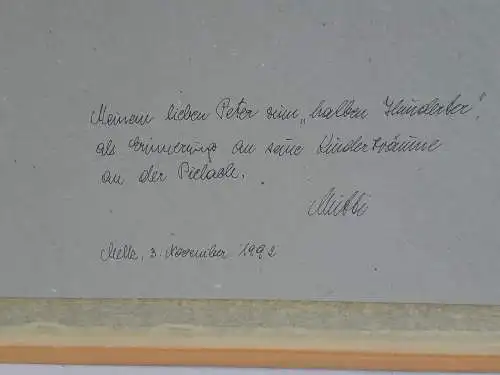 Meinem lieben Peter zum „halben Hunderter“,
als Erinnerung an seine Kinderträume
an der Pielach.
Mutti
Melk, 3. November 1992